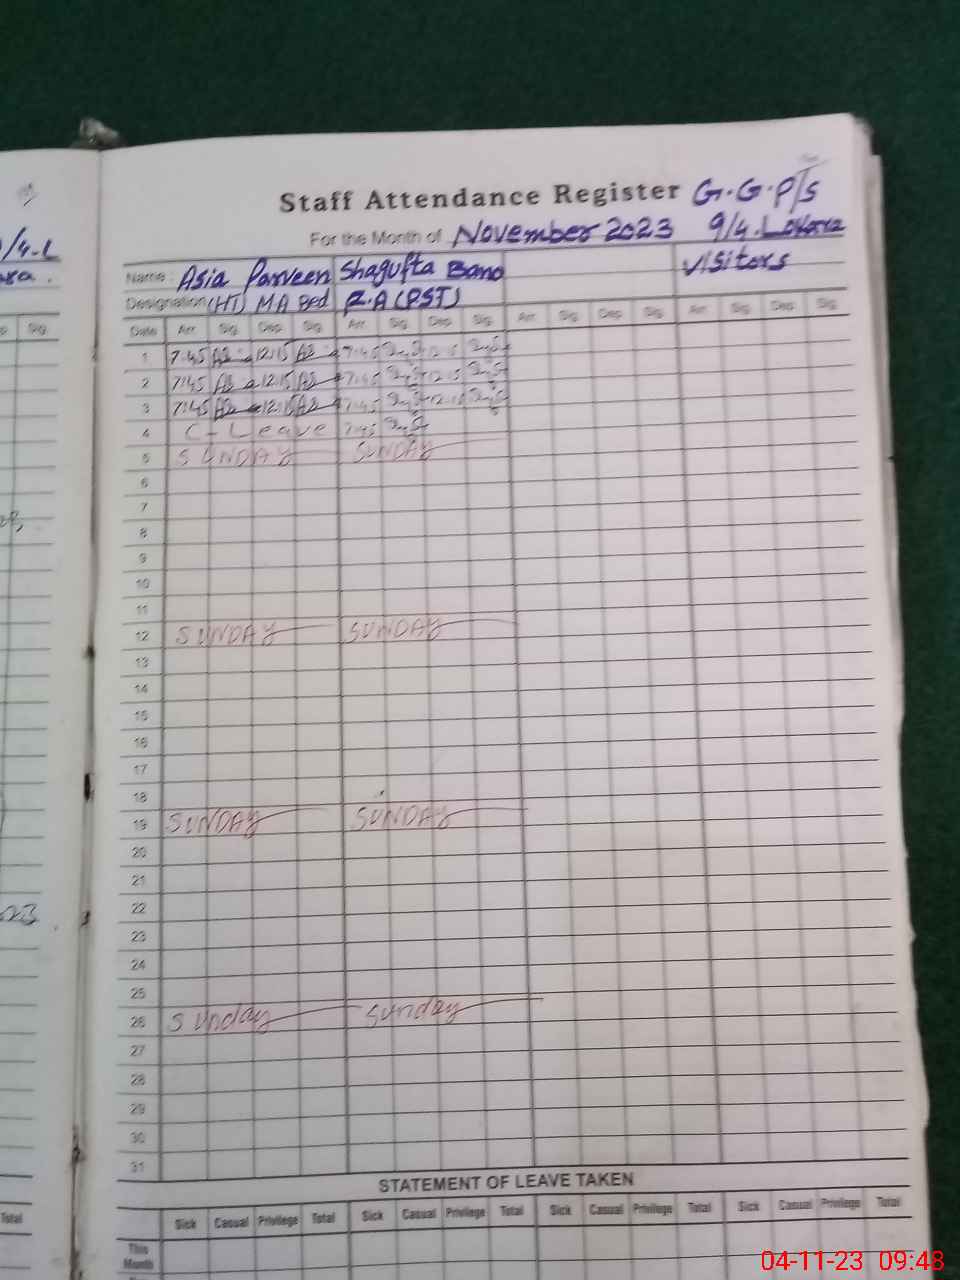 Staff Attendance Register G.G.P/S
For the Month of November 2023 9/4.L Okara
/4.L
Name: Asia Parveen Shagufta Bano visitors
Designation (HT) M A Bed P.A (PST)
Sig.
Date Arr. Sig. Dep. Sig. Arr. Sig. Dep. Sig. Arr. Sig. Dep. Sig. Arr. Sig. Dep. Sig.
1 7:45 12:15 7:45 12:15
2 7:45 12:15 7:45 12:15
3 7:45 12:15 7:45 12:15
4 C-Leave 7:45
5 SUNDAY SUNDAY
6
7
8
9
10
11
12 SUNDAY SUNDAY
13
14
15
16
17
18
19 SUNDAY SUNDAY
20
21
22
23
24
25
26 Sunday Sunday
27
28
29
30
31
STATEMENT OF LEAVE TAKEN
Total
Sick Casual Privilege Total Sick Casual Privilege Total Sick Casual Privilege Total Sick Casual Privilege Total
This
Month
04-11-23 09:48